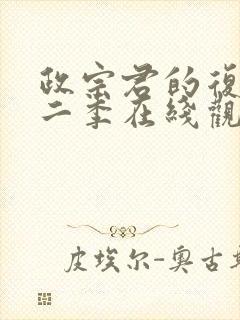 政宗君的復
二季在綫觀
皮埃尔-奥古斯